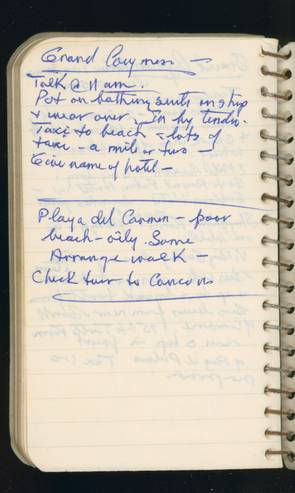 Grand Caymen —
Talk @ 11 am.
Put on bathing suits in ship
& wear over. In by tender.
Taxi to beach — lots of
taxi — a mile or two —
Give name of hotel —
Playa del Carmen — poor
beach — oily. Some
Arrange walk —
Check tour to Cancun